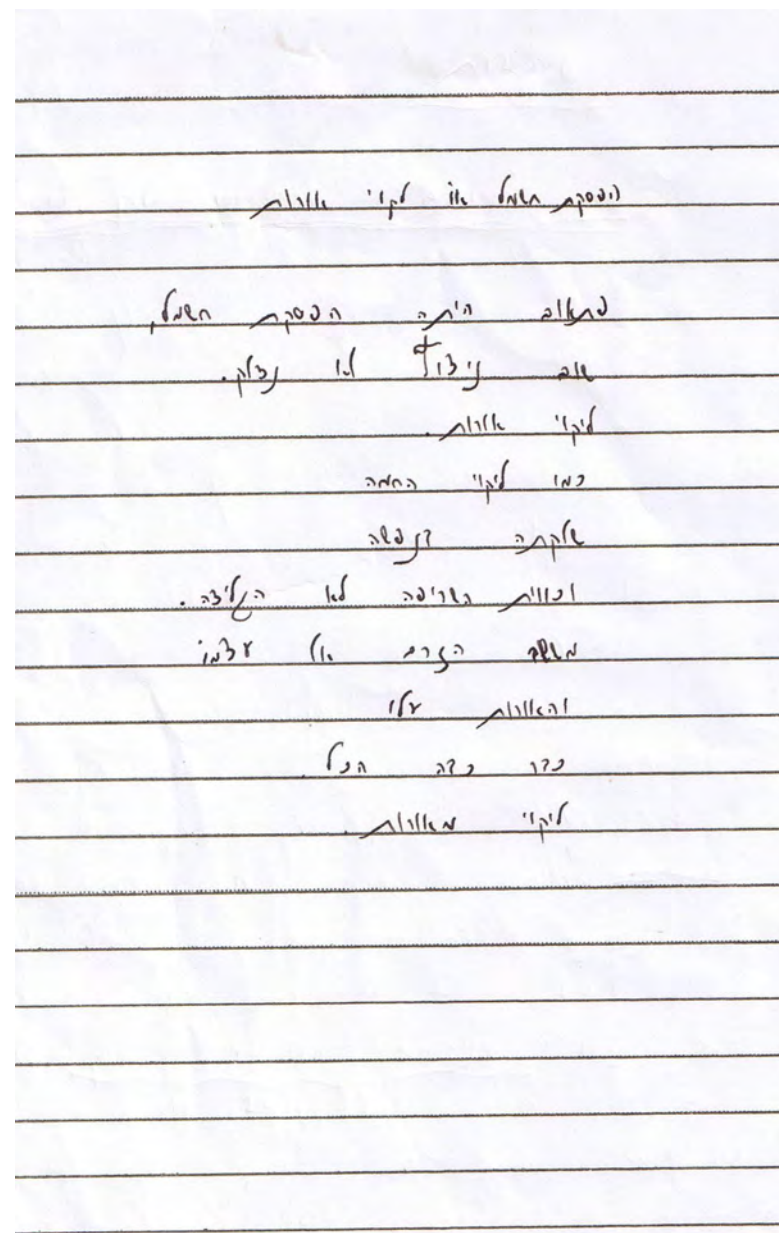 הפסקת חשמל או לקוי אורות
פתאום היתה הפסקת חשמל,
שום ניצוץ לא נדלק.
ליקוי אורות.
כמו ליקוי החמה
שלקתה בנפשה
וכווית השריפה לא הגלידה.
מששב הזרם אל עצמו
והאורות עלו
כבר כבה הכל.
ליקוי מאורות.